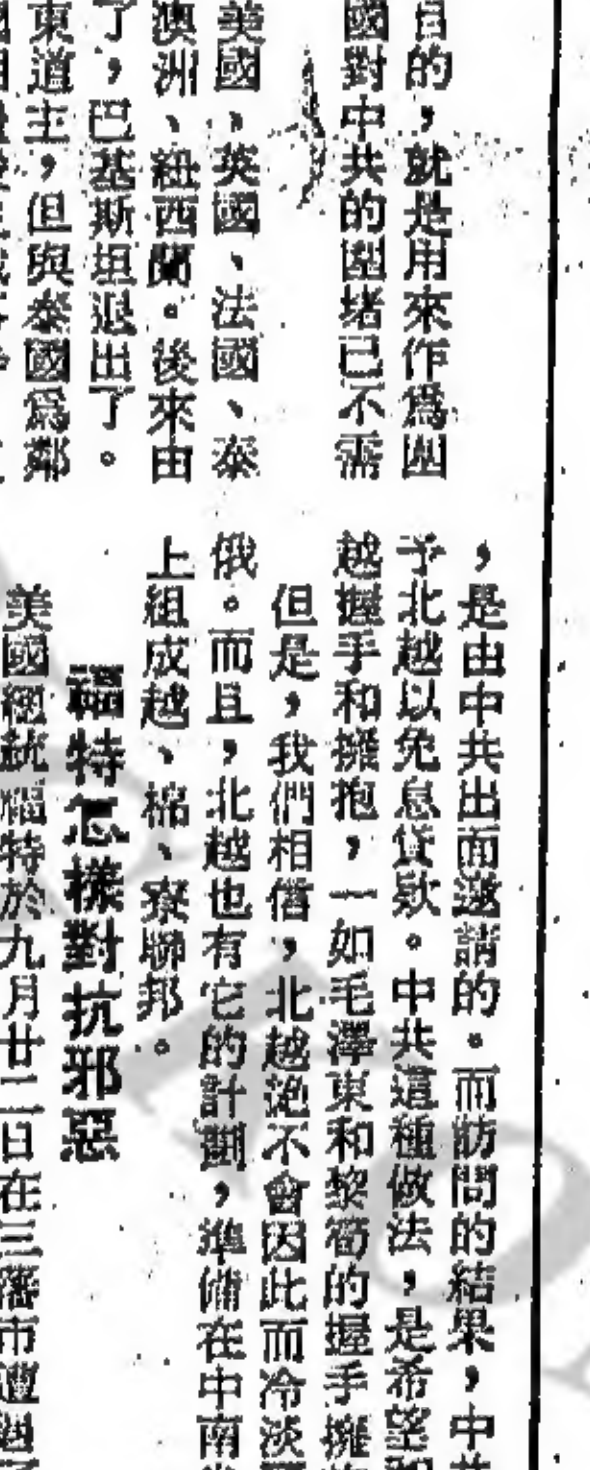 目的，就是用來作爲圍
國對中共的圍堵已不需
美國、英國、法國、泰
澳洲、紐西蘭。後來由
了，巴基斯坦退出了。
東道主，但與泰國爲鄰
，是由中共出面邀請的。而訪問的結果，中共
予北越以免息貸款。中共這種做法，是希望和
越握手和擁抱，一如毛澤東和黎筍的握手擁抱
但是，我們相信，北越絕不會因此而冷淡
俄。而且，北越也有它的計劃，準備在中南
上組成越、棉、寮聯邦。
福特怎樣對抗邪惡
美國總統福特於九月廿二日在三藩市遭遇